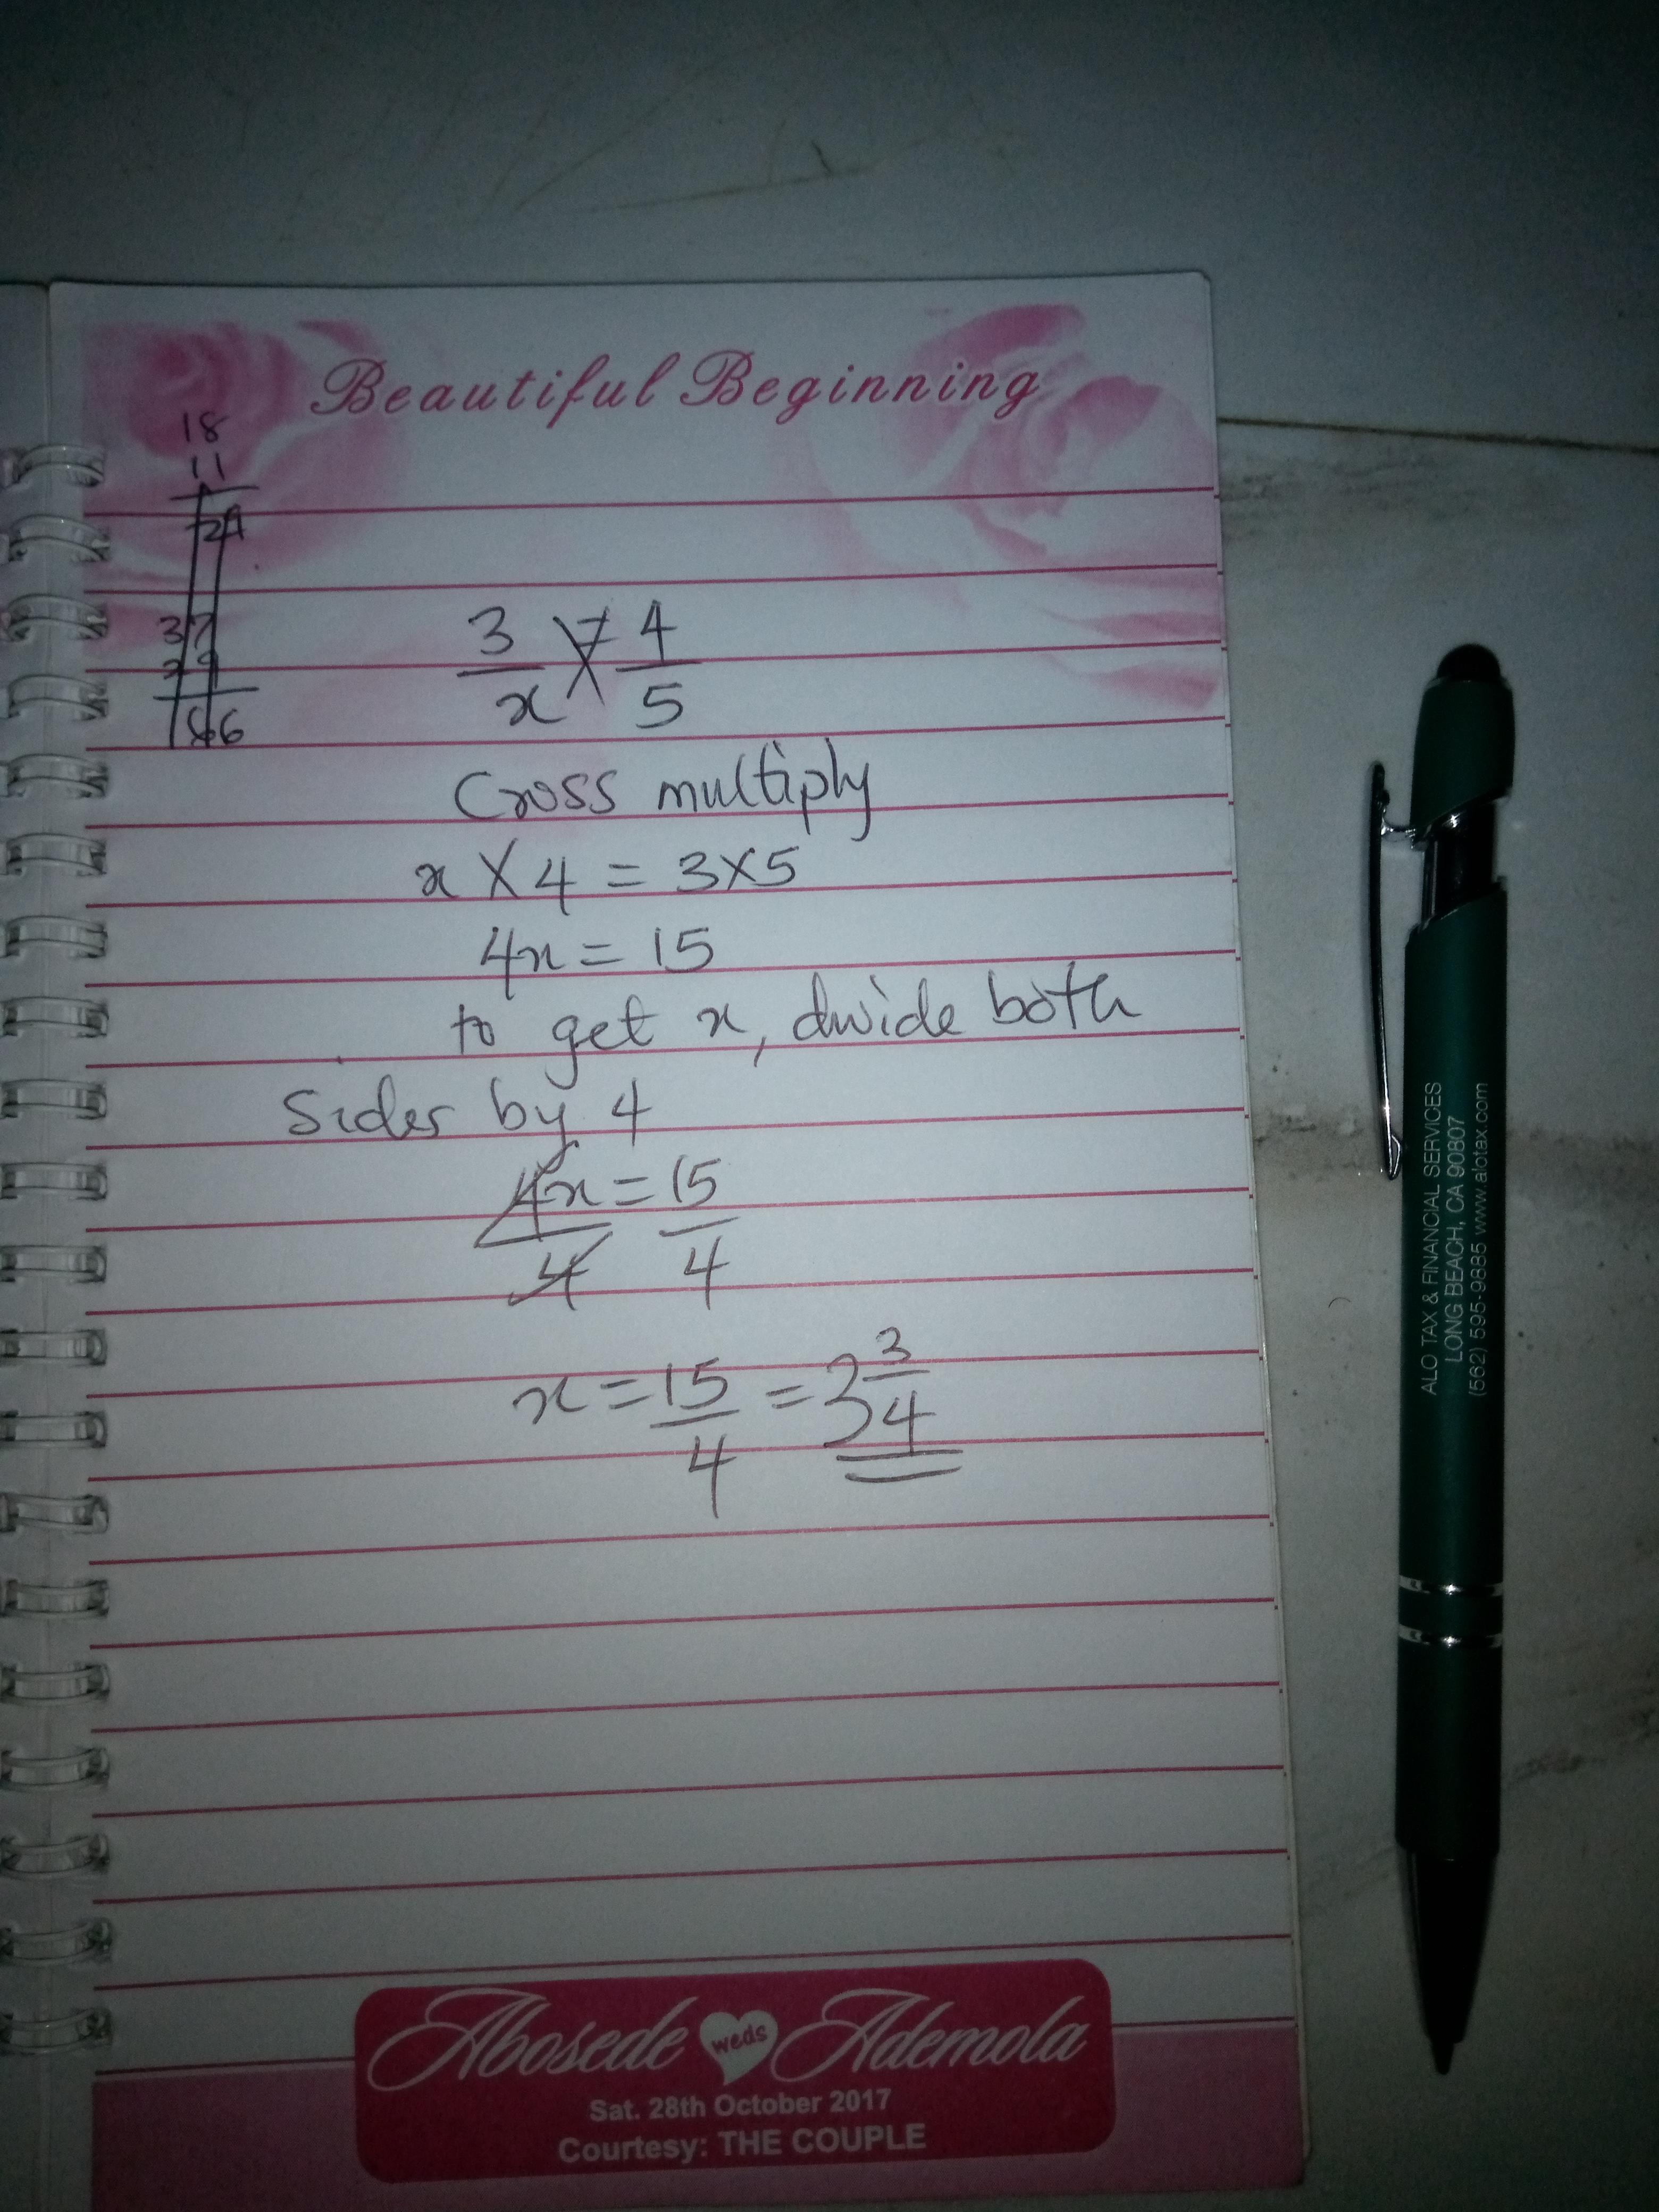 Beautiful Beginning
18
11
29
37
29
66
3 = 4
x 5
Cross multiply
x X 4 = 3X5
4x = 15
to get x, divide both
Sides by 4
4x = 15
4 4
x = 15 = 3 3
4 4
Abosede weds Ademola
Sat. 28th October 2017
Courtesy: THE COUPLE
ALO TAX & FINANCIAL SERVICES
LONG BEACH, CA 90807
(562) 595-9885 www.alotax.com